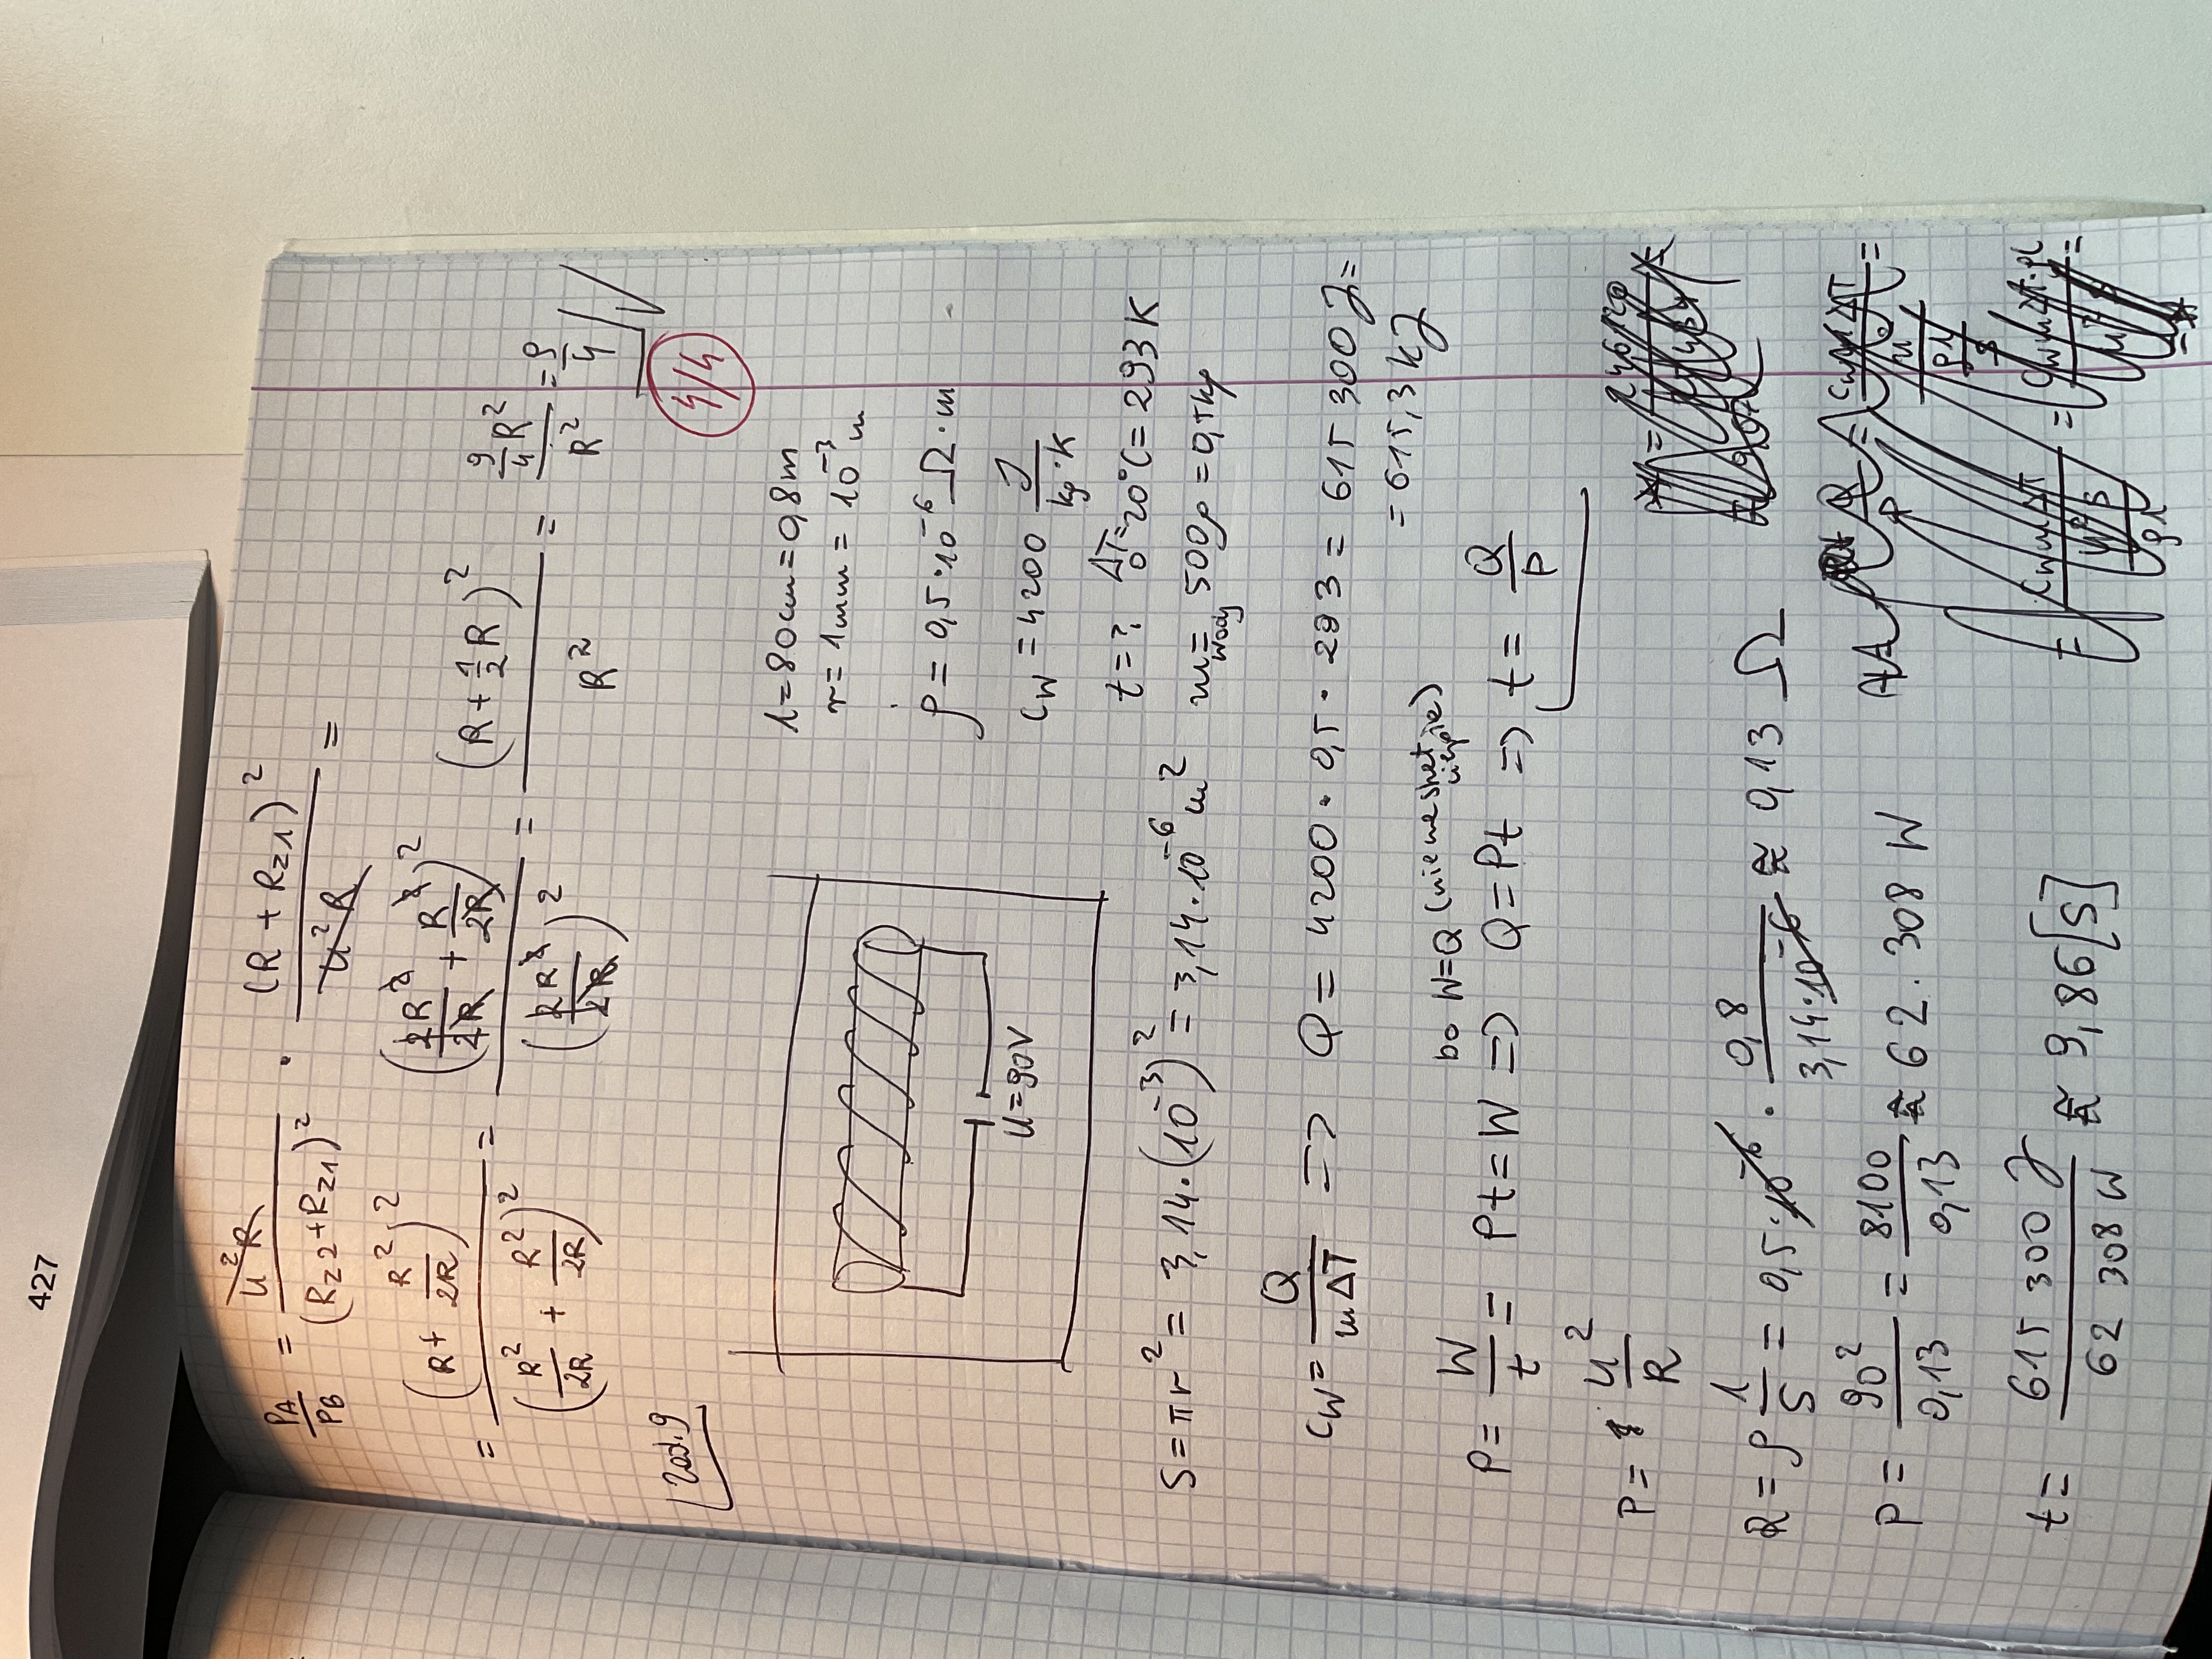 427
PA/PB = U²R/(Rz2+Rz1)² · (R+Rz1)²/U²R =
= (R+R²/2R)²/(R²/2R + R²/2R)² = (2R²/2R + R²/2R)²/(2R²/2R)² = (R+½R)²/R² = 9/4R²/R² = 9/4
4/4
Zad.9
l=80cm=0,8m
r=1mm=10⁻³m
ρ=0,5·10⁻⁶ Ω·m
U=90V
cw=4200 J/kg·K
t=? ΔT=20°C=293K
S=πr²=3,14·(10⁻³)²=3,14·10⁻⁶m²
m wody=500g=0,5kg
cw=Q/mΔT => Q=4200·0,5·293=615300J=
=615,3kJ
bo W=Q (nie ma strat
P=W/t= Pt=W => Q=Pt => t=Q/P
P=U²/R
R=ρ l/S=0,5·10⁻⁶·0,8/3,14·10⁻⁶≈0,13Ω
P=90²/0,13=8100/0,13≈62.308W
t=615 300J/62 308W≈9,86[s]